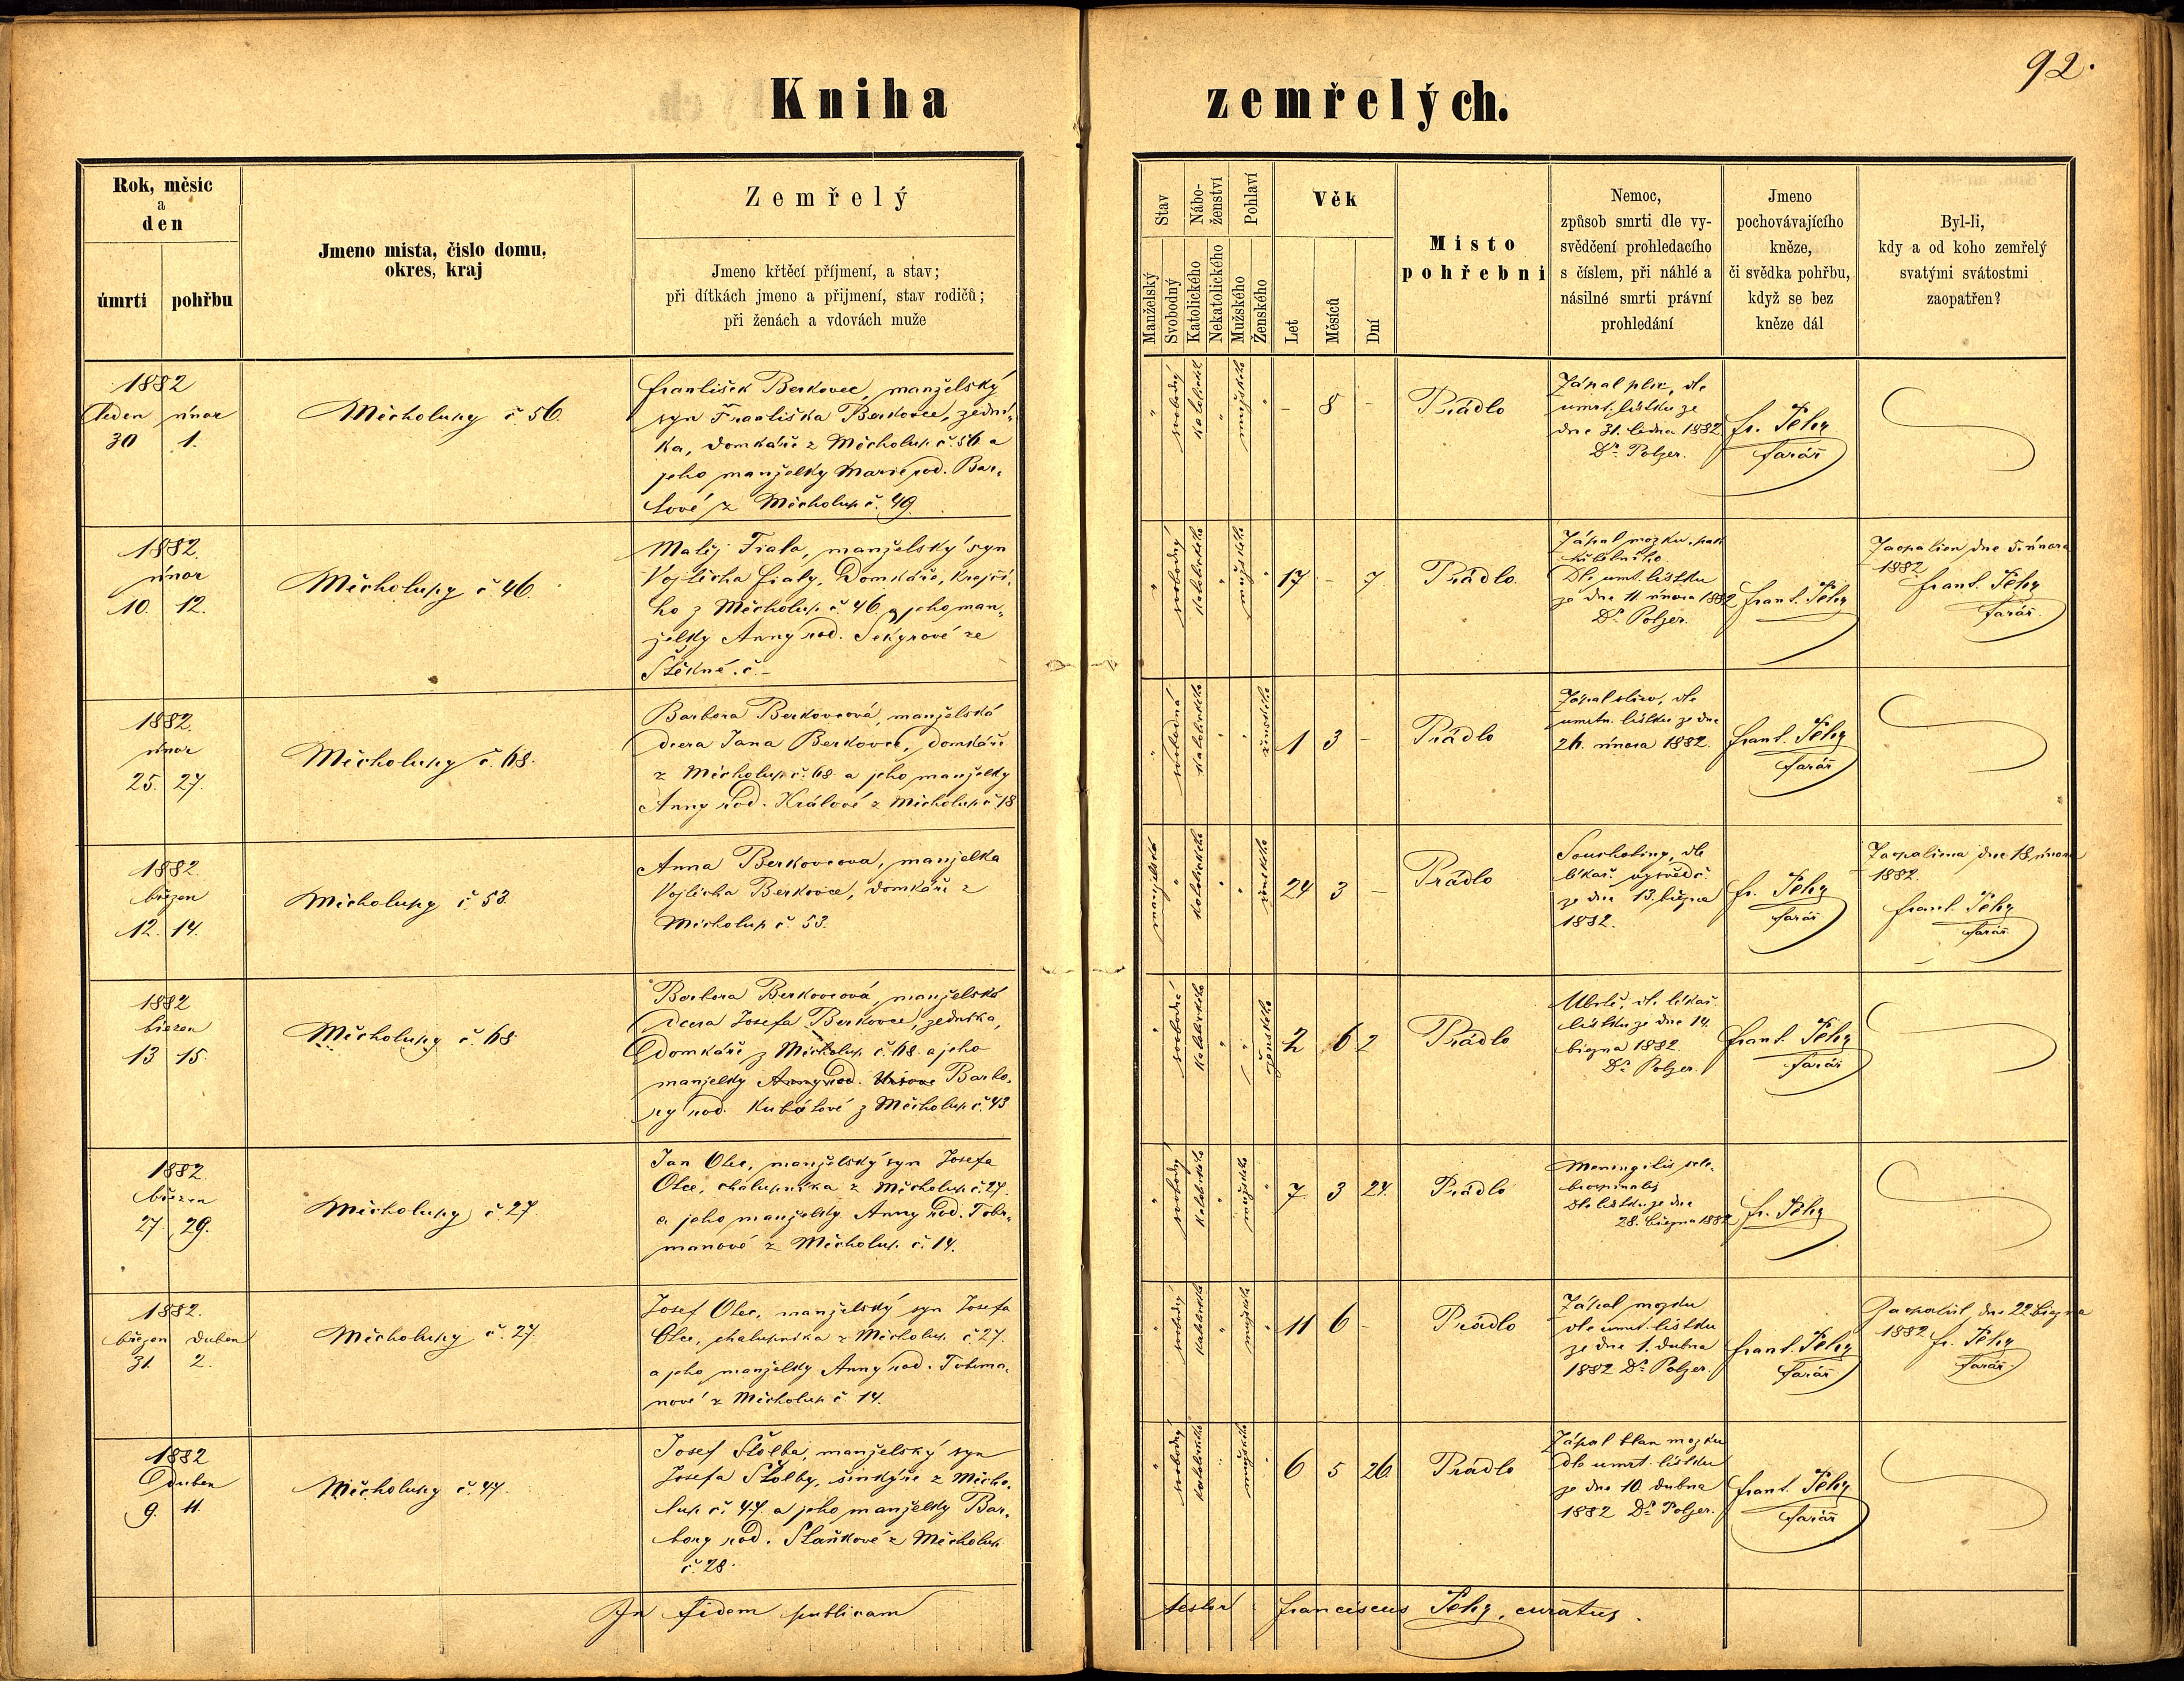 92.
Kniha zemřelých.
Rok, měsíc
a
den
úmrtí
pohřbu
Jmeno mista, čislo domu,
okres, kraj
Zemřelý
Jmeno křtěcí příjmení, a stav;
při dítkách jmeno a přijmení, stav rodičů;
při ženách a vdovách muže
Stav
Nábo-
ženství
Pohlaví
Manželský
Svobodný
Katolického
Nekatolického
Mužského
Ženského
Věk
Let
Měsíců
Dní
Misto
pohřebni
Nemoc,
způsob smrti dle vy-
svědčení prohledacího
s číslem, při náhlé a
násilné smrti právní
prohledání
Jmeno
pochovávajícího
kněze,
či svědka pohřbu,
když se bez
kněze dál
Byl-li,
kdy a od koho zemřelý
svatými svátostmi
zaopatřen?
1882
leden únor
30 1.
Měcholupy č 56.
František Berkovec, manželský
syn Františka Berkovce, zední-
ka, domkáře z Měcholup č 56 a
jeho manželky Marie rod. Bar-
tové z Měcholup č. 49.
" svobodný katolické " mužského "
– 8 –
Prádlo
Zápal plic, dle
úmrt. lístku ze
dne 31. ledna 1882
Dr. Polzer.
fr. Pehy
farář
1882.
únor
10. 12.
Měcholupy č 46.
Matěj Fiala, manželský syn
Vojtěcha Fialy, Domkáře, krejčí-
ho z Měcholup č. 46, a jeho man-
želky Anny rod. Sekyrové ze
Štěkně. č. –
" svobodný katolického " mužského "
17 – 7
Prádlo.
Zápal mozku,
Dle umt. lístku
ze dne 11 února 1882
Dr. Polzer.
frant. Pehy
farář
Zaopatřen dne 5. února
1882
frant. Pehy
farář.
1882.
únor
25. 27.
Měcholupy č. 68.
Barbora Berkovcová, manželská
dcera Jana Berkovce, domkáře
z Měcholup č. 68. a jeho manželky
Anny rod. Králové z Měcholup č 18
" svobodná katolického " " ženského
1 3 –
Prádlo
Zápal dle
umrtn. lístku ze dne
26. února 1882.
frant. Pehy
farář
1882.
březen
12. 14.
Měcholupy č. 53.
Anna Berkovcova, manželka
Vojtěcha Berkovce, domkáře z
Měcholup č. 53.
manželská " katolického " " ženského
24 3 –
Prádlo
Souchotiny, dle
lékař. vysvědč.
ze dne 13. března
1882.
fr. Pehy
farář
Zaopatřena dne 18. února
1882.
frant. Pehy
farář.
1882
březen
13 15.
Měcholupy č. 68
Barbora Berkovcová, manželská
dcera Josefa Berkovce, zedníka,
Domkáře z Měcholup č. 68. a jeho
manželky Anny rod. Barbo-
ry rod. Kubátové z Měcholup č. 43
" svobodné katolického " " ženského
2 6 2
Prádlo
dle lékař.
lístku ze dne 14.
března 1882.
Dr. Polzer.
frant. Pehy
farář
1882.
březen
27 29.
Měcholupy č. 27
Jan Olec, manželský syn Josefa
Olce, chalupníka z Měcholup č. 27.
a jeho manželky Anny rod. Tobr-
manové z Měcholup. č. 14.
" svobodný katolického " mužského "
7 3 24.
Prádlo
Meningitis cere-
brospinalis
Dle lístku ze dne
28. března 1882
fr. Pehy
1882.
březen duben
31. 2.
Měcholupy č. 27.
Josef Olec, manželský syn Josefa
Olce, chalupníka z Měcholup. č 27.
a jeho manželky Anny rod. Toberma-
nové z Měcholup č. 14.
" svobodný katolického " mužského "
11 6 –
Prádlo
Zápal mozku
dle umrt. lístku
ze dne 1. dubna
1882 Dr. Polzer.
frant. Pehy
farář
Zaopatřil dne 22. března
1882 fr. Pehy
farář.
1882
Duben
9. 11.
Měcholupy č. 44.
Josef Štolba, manželský syn
Josefa Štolby, šenkýře z Měcho-
lup. č. 44. a jeho manželky Bar-
bory rod. Staňkové z Měcholup
č. 28.
" svobodný katolického " mužského "
6 5 26.
Prádlo
Zápal blan mozku
dle umrt. lístku
ze dne 10. dubna
1882 Dr. Polzer.
frant. Pehy
farář
In fidem publicam
testor franciscus Pehy, curatus.